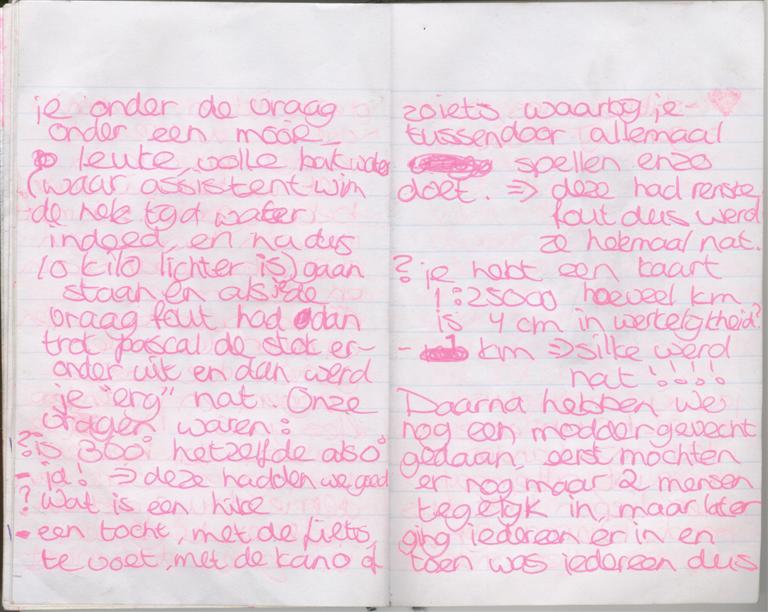 je onder de vraag
onder een mooie
leuke, volle bak water
(waar assistent wim
de hele tyd water
indeed, en nu dus
10 kilo lichter is) gaan
staan en als je de
vraag fout had dan
trok pascal de stok er-
onder uit en dan werd
je "erg" nat. Onze
vragen waren:
? is 360° hetzelfde als 0°
- ja! => deze hadden we goed
? wat is een hike
- een tocht, met de fiets,
te voet, met de kano of
zoiets waarby je
tussendoor allemaal
spellen enzo
doet. => deze had renske
fout dus werd
ze helemaal nat.
? je hebt een kaart
1:25000 hoeveel km
is 4 cm in werkelykheid?
- 1 km => silke werd
nat!!!!
Daarna hebben we
nog een moddergevecht
gedaan, eerst mochten
er nog maar 2 mensen
tegelyk in, maar later
ging iedereen er in en
toen was iedereen dus